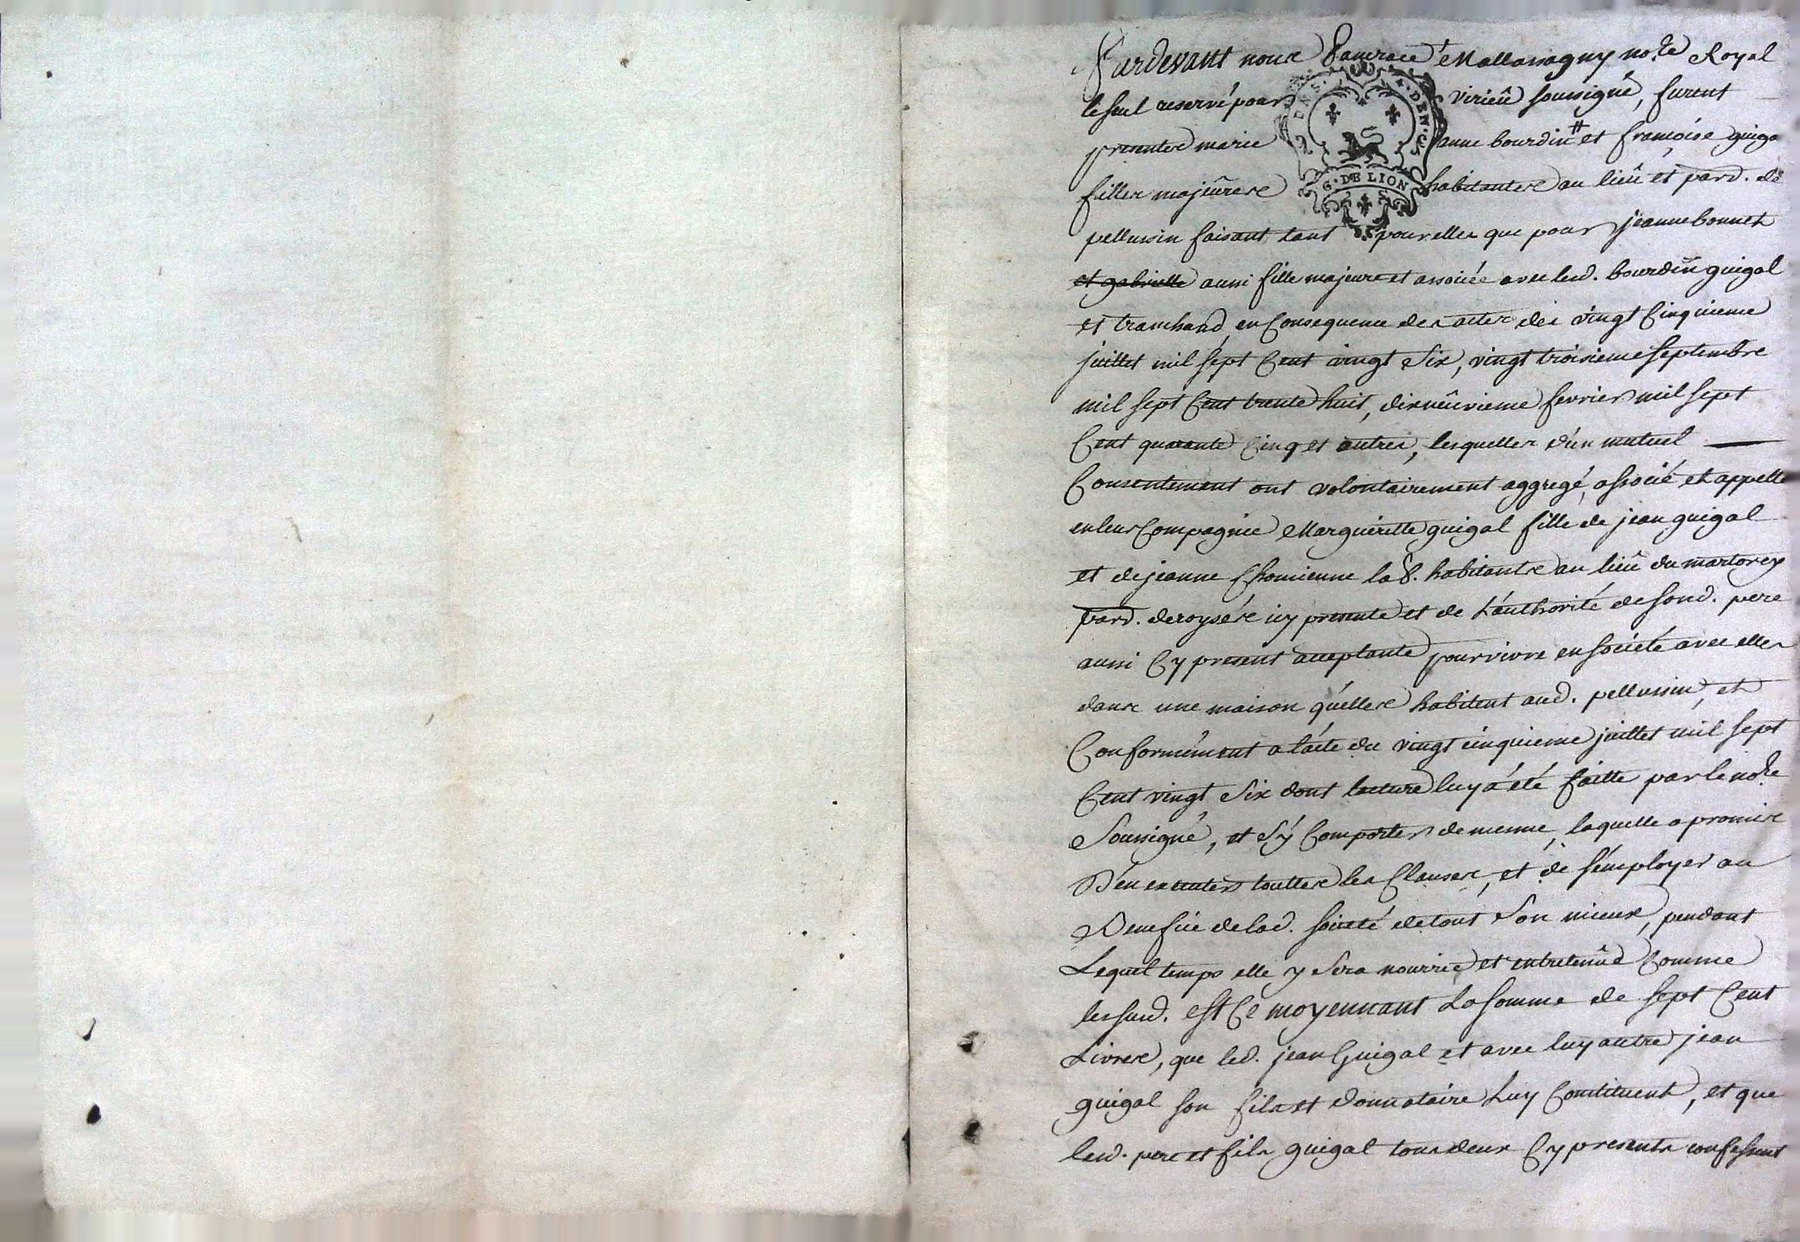 Pardevant nous Pancrace Mallassagny no.re Royal
le seul reservé pour virieû soussigné, furent
presentes marie anne bourdin # et françoise guiga
filles majeures habitantes au lieû et parr. de
G. DE LION
pellussin faisant tant pour elles que pour jeanne bonnet
et gabrielle aussi fille majeure et associée avec lesd. bourdin guigal
et tranchand en Consequence des actes des vingt Cinquieme
juillet mil sept Cent vingt Six, vingt troisieme septembre
mil sept Cent trente huit, dixneûvieme fevrier mil sept
Cent quarante Cinq et autres, lesquelles d'un mutuel
Consentement ont volontairement aggregé, associé et appellé
en leur Compagnie Marguéritte guigal fille de jean guigal
et de jeanne Chomienne la d. habitante au lieû du martorey
parr. de roysée icy presente et de L'authorité de son d. pere
aussi Cy present acceptante pour vivre en société avec elles
dans une maison qu'elles habitent aud. pellussin, et
Conformément a l'acte du vingt cinquieme juillet mil sept
Cent vingt Six dont lecture luy a été faitte par le no.re
Soussigné, et s'y Comporter de meme, laquelle a promis
D'en executer touttes les Clauses, et de s'employer au
Benefice de lad. société de tout Son mieux, pendant
Lequel temps elle y Sera nourrie et entretenûe Comme
les susd. est Ce moyennant La somme de sept Cent
Livres, que led. jean Guigal et avec luy autre jean
guigal son fils et donnataire Luy Constituent, et que
lesd. pere et fils guigal tous deux Cy presents confessent